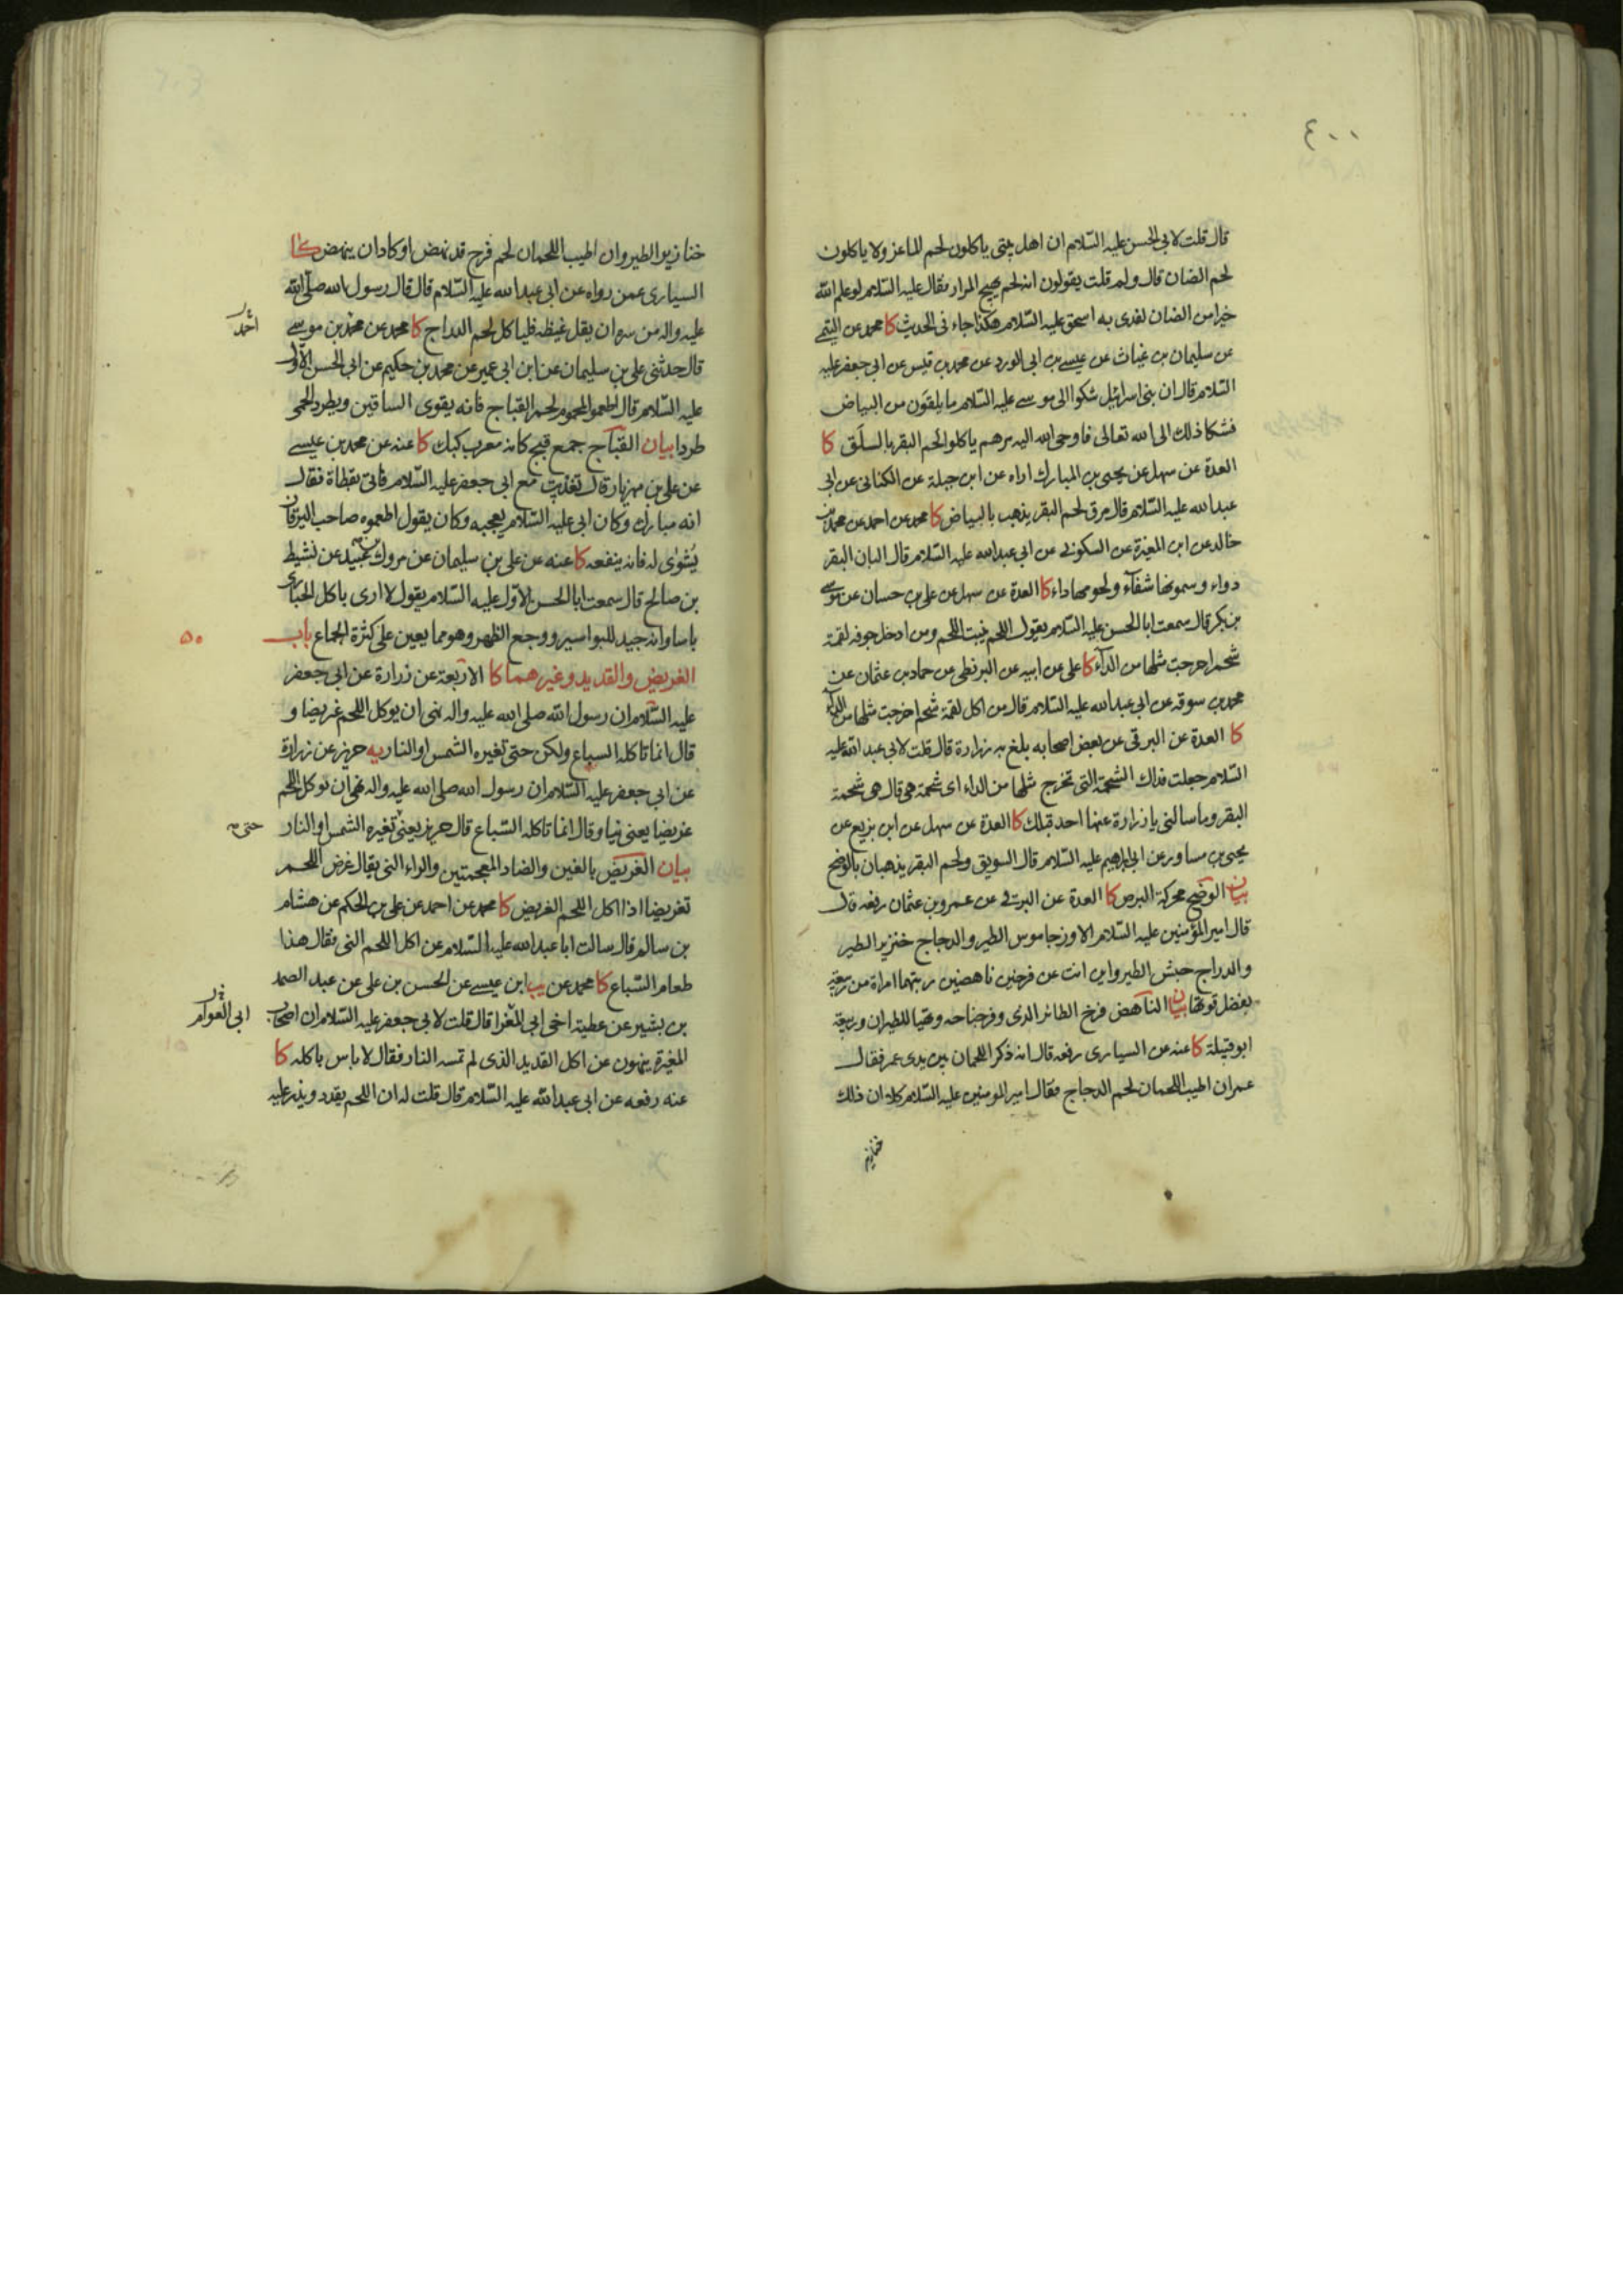 ٤٠٠
قال قلت لابى الحسن عليه السّلام ان اهل بيتى ياكلون لحم الماعز ولا ياكلون
لحم الضان قال ولم قلت يقولون انه لحم يهيج المرار فقال عليه السّلام لو علم الله
خيرا من الضان لفدى به اسحق عليه السّلام هكذا جاء فى الحديث كا محمد عن
عن سليمان بن غياث عن عيسى بن ابى الورد عن محمد بن قيس عن ابى جعفر عليه
السّلام قال ان بنى اسرائيل شكوا الى موسى عليه السّلام ما يلقون من البياض
فشكا ذلك الى الله تعالى فاوحى الله اليه مرهم ياكلوا لحم البقر بالسلق كا
العدة عن سهل عن يحيى بن المبارك اراه عن ابن جبلة عن الكنانى عن ابى
عبد الله عليه السّلام قال مرق لحم البقر يذهب بالبياض كا محمد عن احمد عن محمد بن
خالد عن ابن المغيرة عن السكونى عن ابى عبد الله عليه السّلام قال البان البقر
دواء وسمونها شفآء ولحومها داء كا العدة عن سهل عن على بن حسان عن موسى
بن بكر قال سمعت ابا الحسن عليه السّلام يقول اللحم ينبت اللحم ومن ادخل جوفه لقمة
شحم اخرجت مثلها من الدآء كا على عن ابيه عن البزنطى عن حماد بن عثمان عن
محمد بن سوقه عن ابى عبد الله عليه السّلام قال من اكل لقمة شحم اخرجت مثلها من الدآء
كا العدة عن البرقى عن بعض اصحابه بلغ به زرارة قال قلت لابى عبد الله عليه
السّلام جعلت فداك الشحمة التى تخرج مثلها من الداء اى شحمة هى قال هى شحمة
البقر وما سالنى يا زرارة عنها احد قبلك كا العدة عن سهل عن ابن بزيع عن
يحيى بن مساور عن ابى ابراهيم عليه السّلام قال السويق ولحم البقر يذهبان بالوضح
بيان الوضح محركة البرص كا العدة عن البرقى عن عمرو بن عثمان رفعه قال
قال امير المؤمنين عليه السّلام الاوز جاموس الطير والدجاج خنزير الطير
والدراج حبش الطير واين انت عن فرخين ناهضين ربتهما امراة من ربيعة
بفضل قوتها بيان الناهض فرخ الطائر الذى وفر جناحه وتهيا للطيران وربيعة
ابو قبيلة كا عنه عن السيارى رفعه قال انه ذكر اللحمان بين يدى عمر فقال
عمر ان اطيب اللحمان لحم الدجاج فقال امير المومنين عليه السّلام كلا ان ذلك
خنازير
خنازير الطير وان اطيب اللحمان لحم فرخ قد نهض او كاد ان ينهض كا
السيارى عمن رواه عن ابى عبد الله عليه السّلام قال قال رسول الله صلّى الله
عليه واله من سره ان يقل غيظه فلياكل لحم الدراج كا محمد عن محمد بن موسى
احمد
قال حدثنى على بن سليمان عن ابن ابى عمير عن محمد بن حكيم عن ابى الحسن الاول
عليه السّلام قال اطعموا المحموم لحم القباج فانه يقوى الساقين ويطرد الحمى
طردا بيان القباج جمع قبج كانه معرب كبك كا عنه عن محمد بن عيسى
عن على بن مهزيار قال تغذيت مع ابى جعفر عليه السّلام فاتى بقطاة فقال
انه مبارك وكان ابى عليه السّلام يعجبه وكان يقول اطعموه صاحب اليرقان
يُشوى له فانه ينفعه كا عنه عن على بن سليمان عن مروك بن عبيد عن نشيط
بن صالح قال سمعت ابا الحسن الاوّل عليه السّلام يقول لا ارى باكل الحبارى
باسا وانه جيد للبواسير ووجع الظهر وهو مما يعين على كثرة الجماع باب
٥٠
الغريض والقديد وغيرهما كا الاربعة عن زرارة عن ابى جعفر
عليه السّلام ان رسول الله صلى الله عليه واله نهى ان يوكل اللحم غريضا و
قال انما تاكله السباع ولكن حتى تغيره الشمس او النار يه حريز عن زرارة
عن ابى جعفر عليه السّلام ان رسول الله صلى الله عليه واله نهى ان يوكل اللحم
غريضا يعنى نيا وقال انما تاكله السّباع قال حريز يعنى تغيره الشمس او النار
حتى
بيان الغريض بالغين والضاد المعجمتين والراء النى يقال غرض اللحم
تغريضا اذا اكل اللحم الغريض كا محمد عن احمد عن على بن الحكم عن هشام
بن سالم قال سالت ابا عبد الله عليه السّلام عن اكل اللحم النى فقال هذا
طعام السّباع كا محمد عن يب ابن عيسى عن الحسن بن على عن عبد الصمد
بن بشير عن عطية اخى ابى المغرا قال قلت لابى جعفر عليه السّلام ان اصحاب
ابى العوام
المغيرة ينهون عن اكل القديد الذى لم تمسه النار فقال لا باس باكله كا
عنه رفعه عن ابى عبد الله عليه السّلام قال قلت له ان اللحم يقدد ويذر عليه